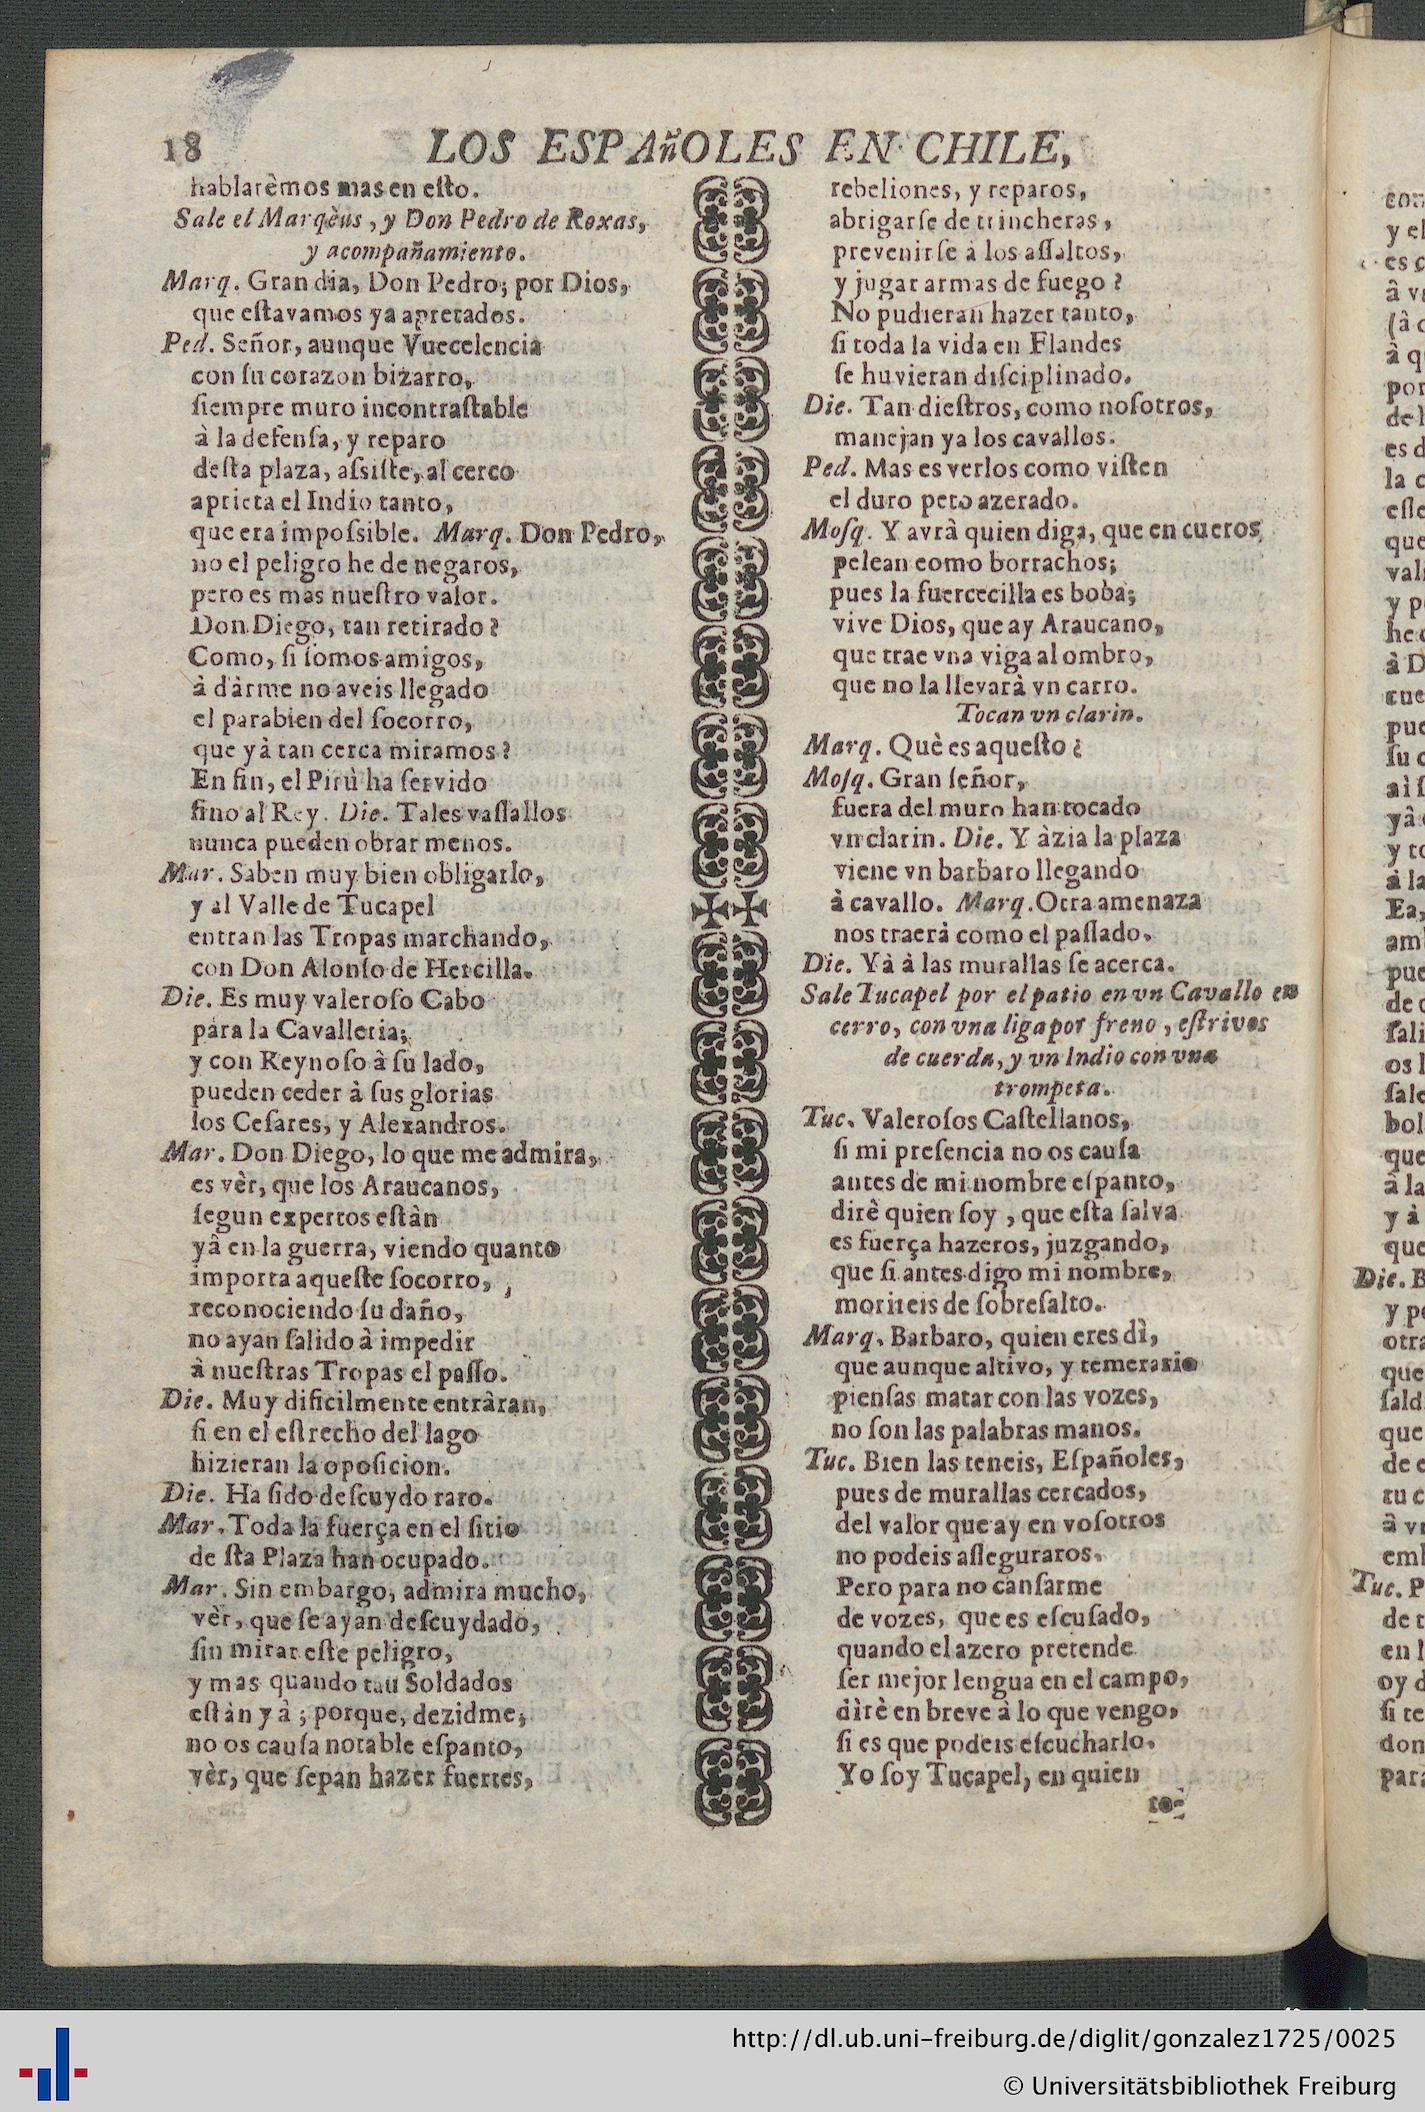 18 LOS ESPAñOLES EN CHILE,
hablarèmos mas en eſto.
Sale el Marqèus, y Don Pedro de Roxas,
y acompañamiento.
Marq. Gran dia, Don Pedro; por Dios,
que eſtavamos ya apretados.
Ped. Señor, aunque Vuecelencia
con ſu corazon bizarro,
ſiempre muro incontraſtable
à la defenſa, y reparo
deſta plaza, aſsiſte, al cerco
aprieta el Indio tanto,
que era impoſsible. Marq. Don Pedro,
no el peligro he de negaros,
pero es mas nueſtro valor.
Don Diego, tan retirado?
Como, ſi ſomos amigos,
à dàrme no aveis llegado
el parabien del ſocorro,
que yà tan cerca miramos?
En fin, el Pirù ha ſervido
fino al Rey. Die. Tales vaſſallos
nunca pueden obrar menos.
Mar. Saben muy bien obligarlo,
y al Valle de Tucapel
entran las Tropas marchando,
con Don Alonſo de Hercilla.
Die. Es muy valeroſo Cabo
para la Cavalleria;
y con Reynoſo à ſu lado,
pueden ceder à ſus glorias
los Ceſares, y Alexandros.
Mar. Don Diego, lo que me admira,
es vèr, que los Araucanos,
ſegun expertos eſtàn
yâ en la guerra, viendo quanto
importa aqueſte ſocorro,
reconociendo ſu daño,
no ayan ſalido à impedir
à nueſtras Tropas el paſſo.
Die. Muy dificilmente entràran,
ſi en el eſtrecho del lago
hizieran la opoſicion.
Die. Ha ſido deſcuydo raro.
Mar. Toda la fuerça en el ſitio
de ſta Plaza han ocupado.
Mar. Sin embargo, admira mucho,
vèr, que ſe ayan deſcuydado,
ſin mirar eſte peligro,
y mas quando tau Soldados
eſtàn yà; porque, dezidme,
no os cauſa notable eſpanto,
vèr, que ſepan hazer fuertes,
rebeliones, y reparos,
abrigarſe de trincheras,
prevenirſe à los aſſaltos,
y jugar armas de fuego?
No pudieran hazer tanto,
ſi toda la vida en Flandes
ſe huvieran diſciplinado.
Die. Tan dieſtros, como noſotros,
manejan ya los cavallos.
Ped. Mas es verlos como viſten
el duro peto azerado.
Moſq. Y avrà quien diga, que en cueros
pelean como borrachos;
pues la fuercecilla es boba;
vive Dios, que ay Araucano,
que trae vna viga al ombro,
que no la llevarà vn carro.
Tocan vn clarin.
Marq. Què es aqueſto?
Moſq. Gran ſeñor,
fuera del muro han tocado
vn clarin. Die. Y àzia la plaza
viene vn barbaro llegando
à cavallo. Marq. Otra amenaza
nos traerà como el paſſado.
Die. Yà à las murallas ſe acerca.
Sale Tucapel por el patio en vn Cavallo en
cerro, con vna liga por freno, eſtrivos
de cuerda, y vn Indio con vna
trompeta.
Tuc. Valeroſos Caſtellanos,
ſi mi preſencia no os cauſa
antes de mi nombre eſpanto,
dirè quien ſoy, que eſta ſalva
es fuerça hazeros, juzgando,
que ſi antes digo mi nombre,
morireis de ſobreſalto.
Marq. Barbaro, quien eres dì,
que aunque altivo, y temerario
pienſas matar con las vozes,
no ſon las palabras manos.
Tuc. Bien las teneis, Eſpañoles,
pues de murallas cercados,
del valor que ay en voſotros
no podeis aſſeguraros.
Pero para no canſarme
de vozes, que es eſcuſado,
quando el azero pretende
ſer mejor lengua en el campo,
dirè en breve à lo que vengo,
ſi es que podeis eſcucharlo.
Yo ſoy Tucapel, en quien
to-
http://dl.ub.uni-freiburg.de/diglit/gonzalez1725/0025
© Universitätsbibliothek Freiburg